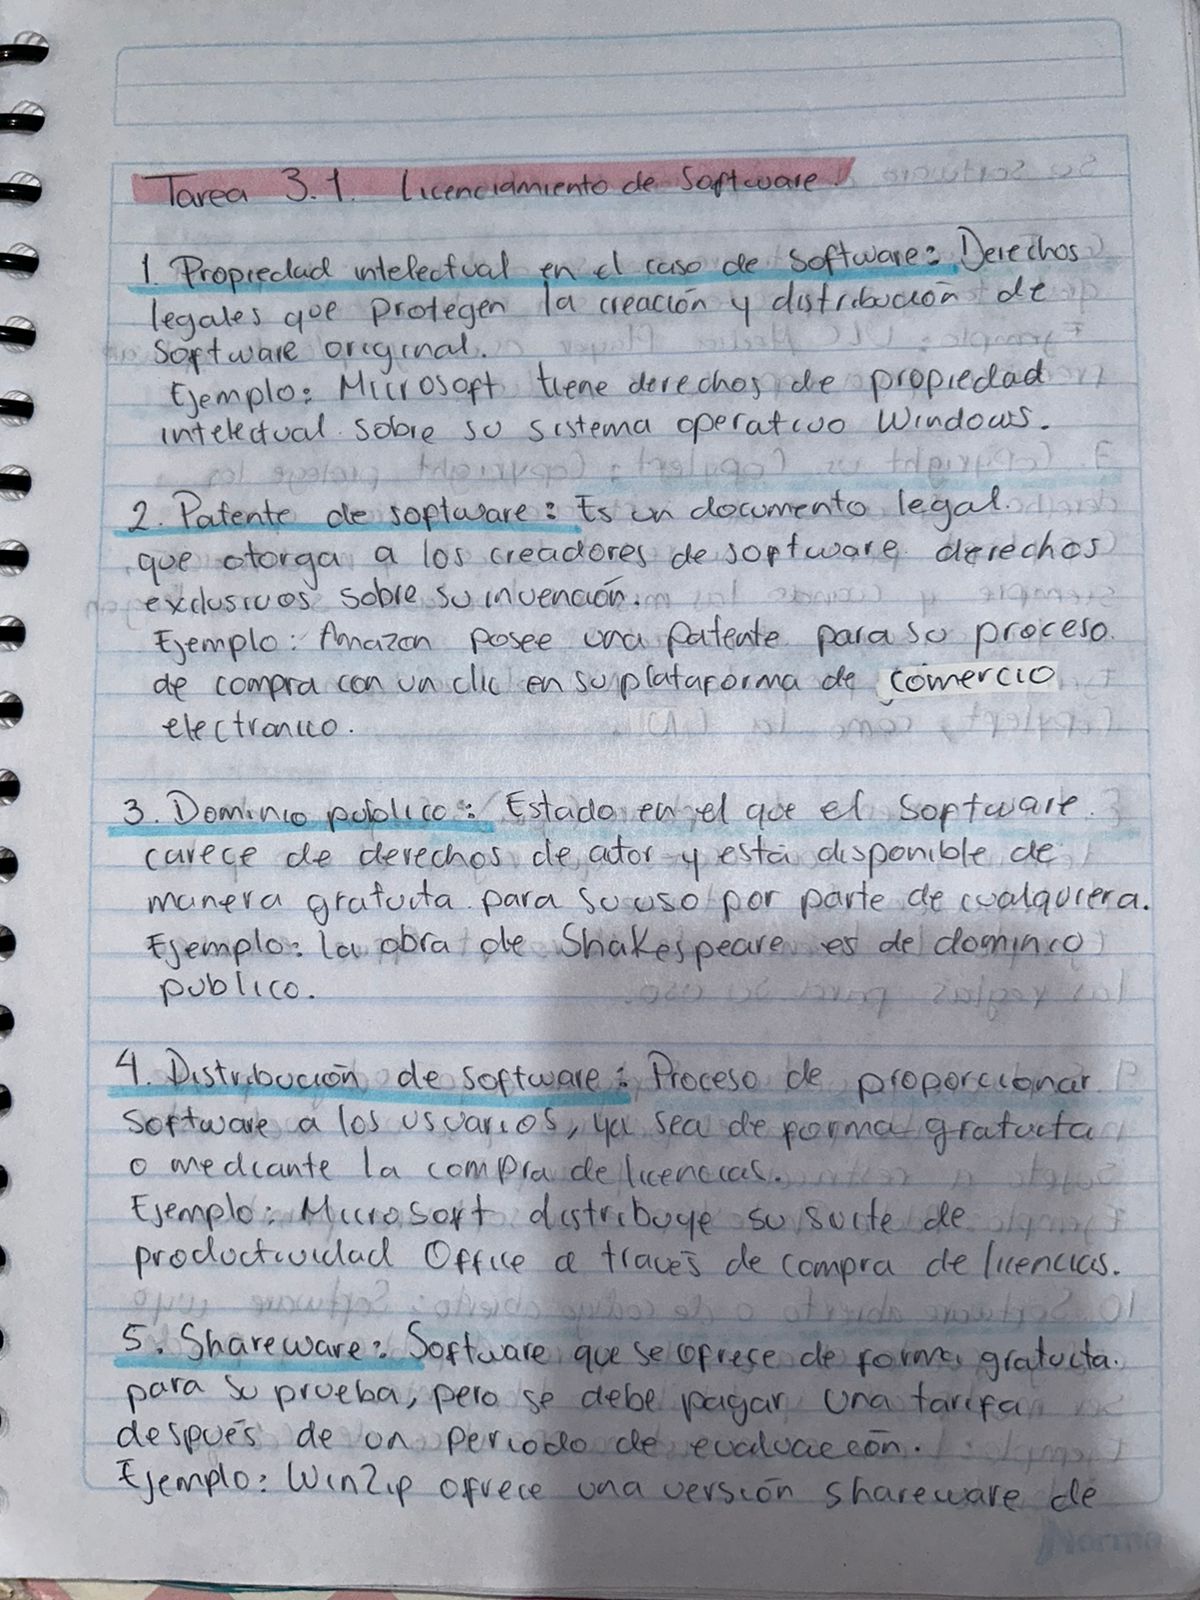 Tarea 3.1. Licenciamiento de Software.
1. Propiedad intelectual en el caso de software: Derechos
legales que protegen la creación y distribución de
Software original.
Ejemplo: Microsoft tiene derechos de propiedad
intelectual sobre su sistema operativo Windows.
2. Patente de software: Es un documento legal
que otorga a los creadores de software derechos
exclusivos sobre su invención.
Ejemplo: Amazon posee una patente para su proceso
de compra con un clic en su plataforma de comercio
electronico.
3. Dominio publico: Estado en el que el Software
carece de derechos de ator y está disponible de
manera gratuita para su uso por parte de cualquiera.
Ejemplo: la obra de Shakespeare es de dominio
publico.
4. Distribución de software: Proceso de proporcionar
Software a los usuarios, ya sea de forma gratuita
o mediante la compra de licencias.
Ejemplo: Microsoft distribuye su suite de
productividad Office a través de compra de licencias.
5. Shareware: Software que se ofrece de forma gratuita
para su prueba, pero se debe pagar una tarifa
después de un periodo de evaluación.
Ejemplo: WinZip ofrece una versión shareware de
Norma